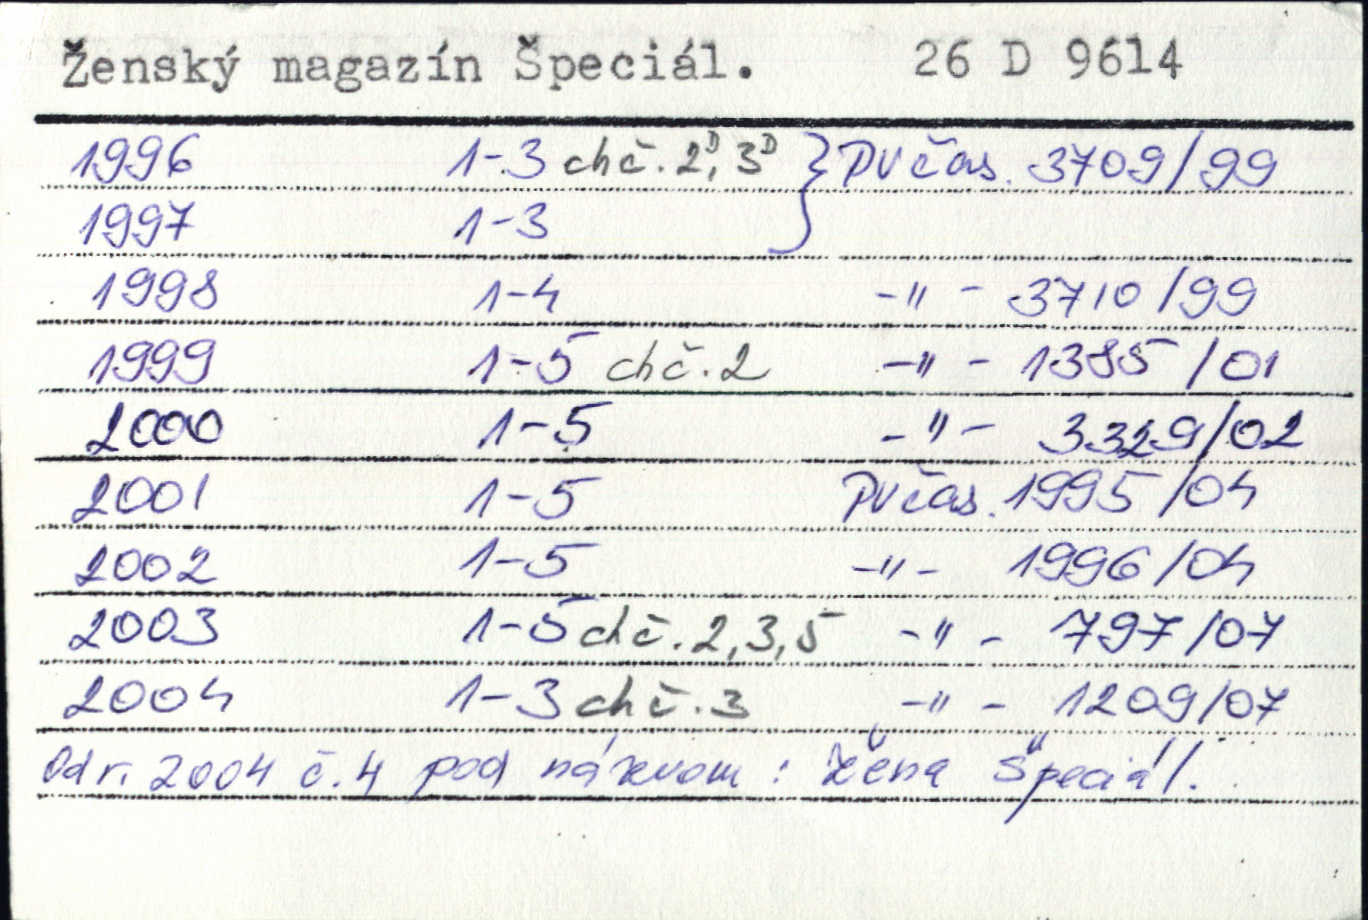 Ženský magazín Špeciál. 26 D 9614
1996 1-3 chč. 2D, 3D } PV čas. 3709/99
1997 1-3
1998 1-4 -"- 3710/99
1999 1-5 chč. 2 -"- 1385/01
2000 1-5 -"- 3329/02
2001 1-5 PV čas. 1995/04
2002 1-5 -"- 1996/04
2003 1-5 chč. 2, 3, 5 -"- 797/07
2004 1-3 chč. 3 -"- 1209/07
Od r. 2004 č. 4 pod názvom: Žena Špeciál.